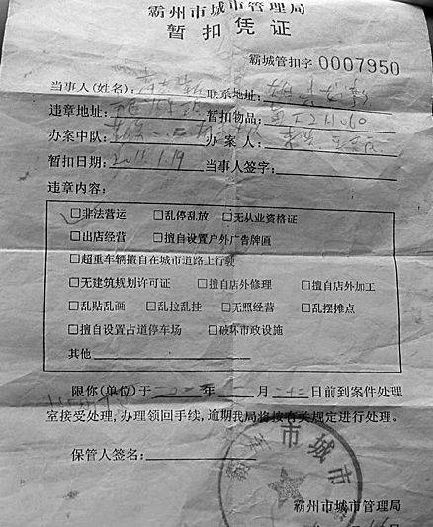 霸州市城市管理局
暂扣凭证
霸城管扣字 0007950
当事人(姓名): 联系地址:
违章地址: 暂扣物品:
办案中队: 办案人:
暂扣日期: 2015.1.19 当事人签字:
违章内容:
□非法营运 □乱停乱放 □无从业资格证
□出店经营 □擅自设置户外广告牌匾
□超重车辆擅自在城市道路上行驶
□无建筑规划许可证 □擅自店外修理 □擅自店外加工
□乱贴乱画 □乱拉乱挂 □无照经营 □乱摆摊点
□擅自设置占道停车场 □破坏市政设施
其他
限你(单位)于 年 月 日前到案件处理
室接受处理,办理领回手续,逾期我局将按有关规定进行处理。
保管人签名:
市城市
霸州市城市管理局